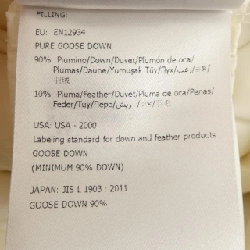 FILLING:
EU: EN12934
PURE GOOSE DOWN
90% Piumino/Down/Duvet/Plumón de oca/
Plumas/Daune/
10% Piuma/Feather/Duvet/Pluma de oca/Penas/
Feder/Tüy/Перо/ريش/
USA: USA - 2000
Labeling standard for down and feather products
GOOSE DOWN
(MINIMUM 90% DOWN)
JAPAN: JIS L 1903 : 2011
GOOSE DOWN 90%